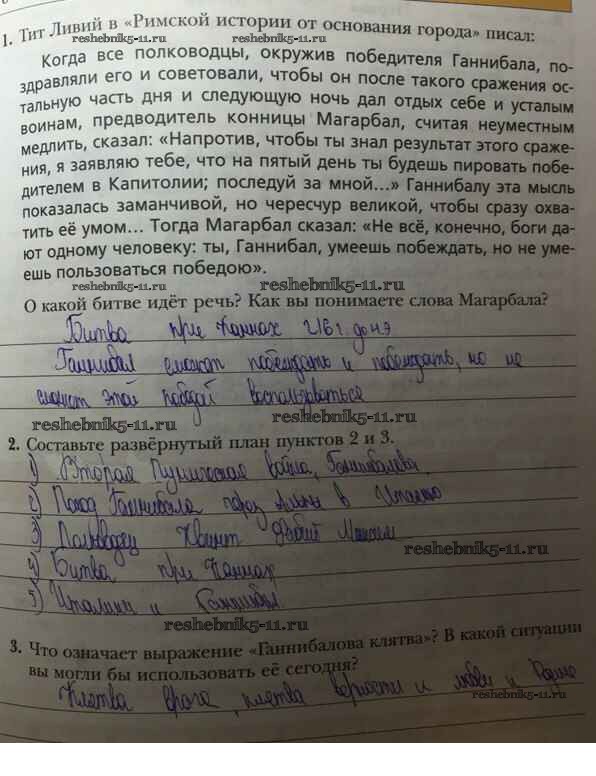 1. Тит Ливий в «Римской истории от основания города» писал:
reshebnik5-11.ru
reshebnik5-11.ru
Когда все полководцы, окружив победителя Ганнибала, по-
здравляли его и советовали, чтобы он после такого сражения ос-
тальную часть дня и следующую ночь дал отдых себе и усталым
воинам, предводитель конницы Магарбал, считая неуместным
медлить, сказал: «Напротив, чтобы ты знал результат этого сраже-
ния, я заявляю тебе, что на пятый день ты будешь пировать побе-
дителем в Капитолии; последуй за мной...» Ганнибалу эта мысль
показалась заманчивой, но чересчур великой, чтобы сразу охва-
тить её умом... Тогда Магарбал сказал: «Не всё, конечно, боги да-
ют одному человеку: ты, Ганнибал, умеешь побеждать, но не уме-
ешь пользоваться победою».
reshebnik5-11.ru
О какой битве идёт речь? Как вы понимаете слова Магарбала?
Битва при Каннах 216 г. до н.э
Ганнибал сможет побеждать и побеждать, но не
сможет этой победой воспользоваться
reshebnik5-11.ru
reshebnik5-11.ru
2. Составьте развёрнутый план пунктов 2 и 3.
1) Вторая Пуническая война, Ганнибалова.
2) Поход Ганнибала через Альпы в Италию
3) Полководец Квинт Фабий Максим
reshebnik5-11.ru
4) Битва при Каннах
5) Италики и Ганнибал
reshebnik5-11.ru
3. Что означает выражение «Ганнибалова клятва»? В какой ситуации
вы могли бы использовать её сегодня?
Клятва врага, клятва верности и любви и Родине
reshebnik5-11.ru